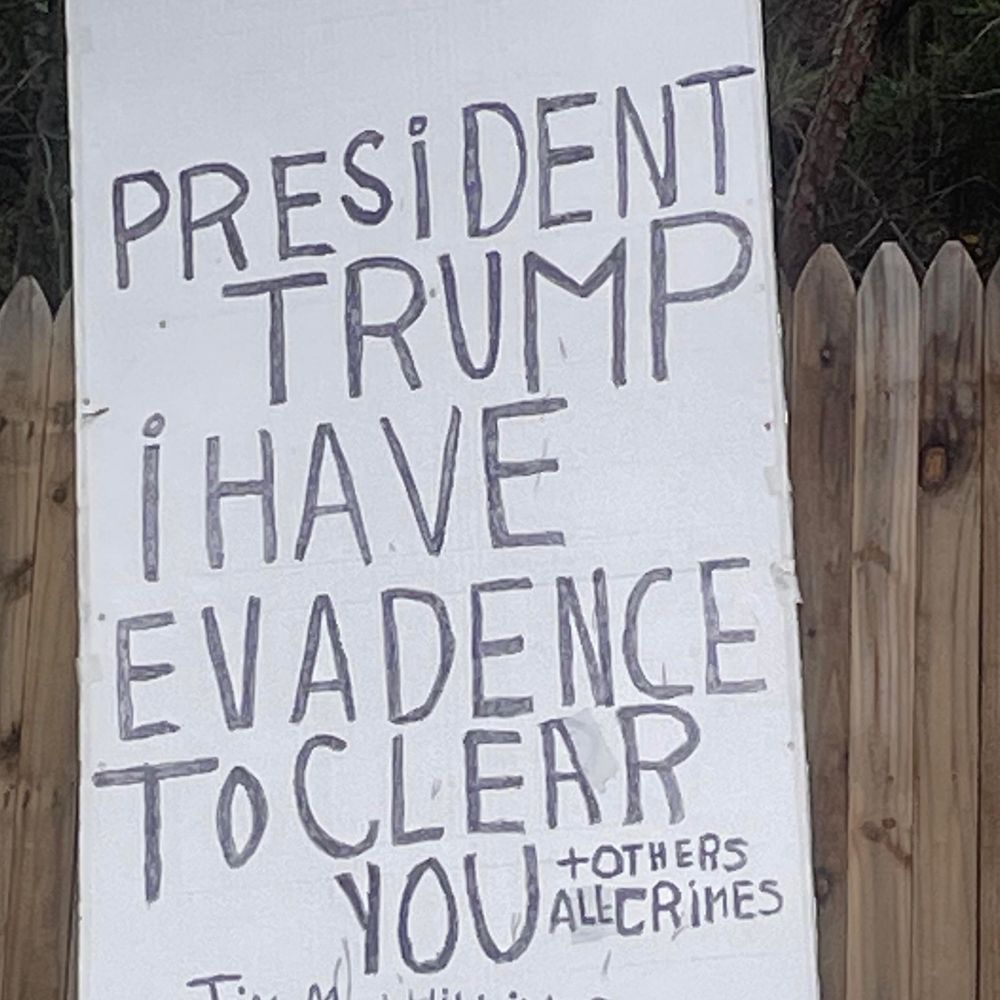 PRESiDENT
TRUMP
i HAVE
EVADENCE
TO CLEAR
YOU
+OTHERS
ALL CRiMES